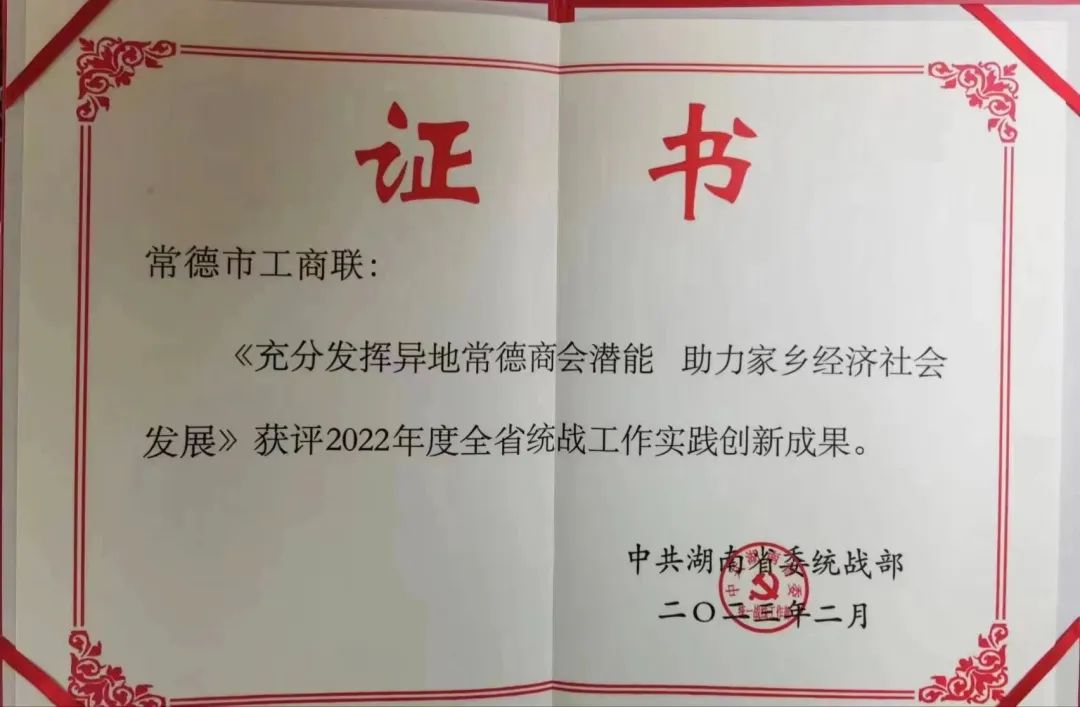 证 书
常德市工商联：
《充分发挥异地常德商会潜能 助力家乡经济社会
发展》获评2022年度全省统战工作实践创新成果。
中共湖南省委统战部
二〇二三年二月